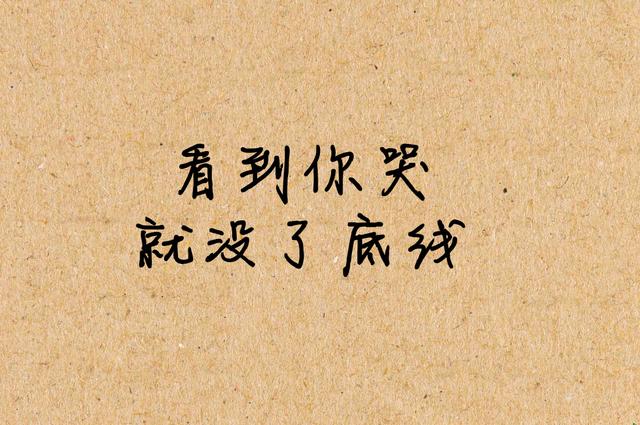 看到你哭
就没了底线